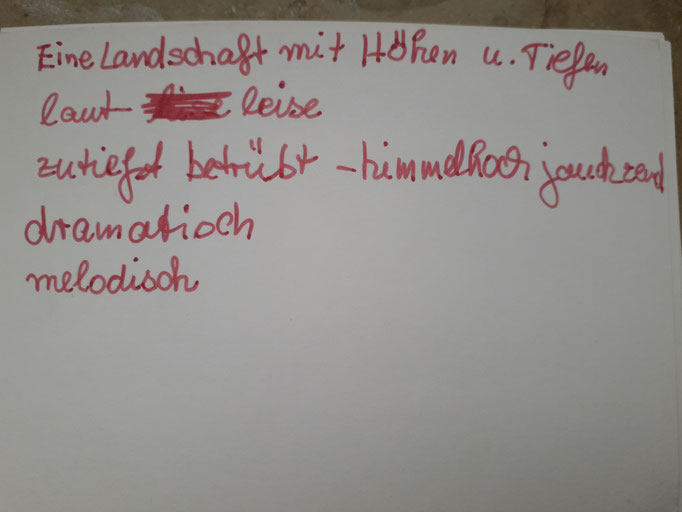 Eine Landschaft mit Höhen u. Tiefen
laut leise
zutiefst betrübt - himmelhoch jauchzend
dramatisch
melodisch